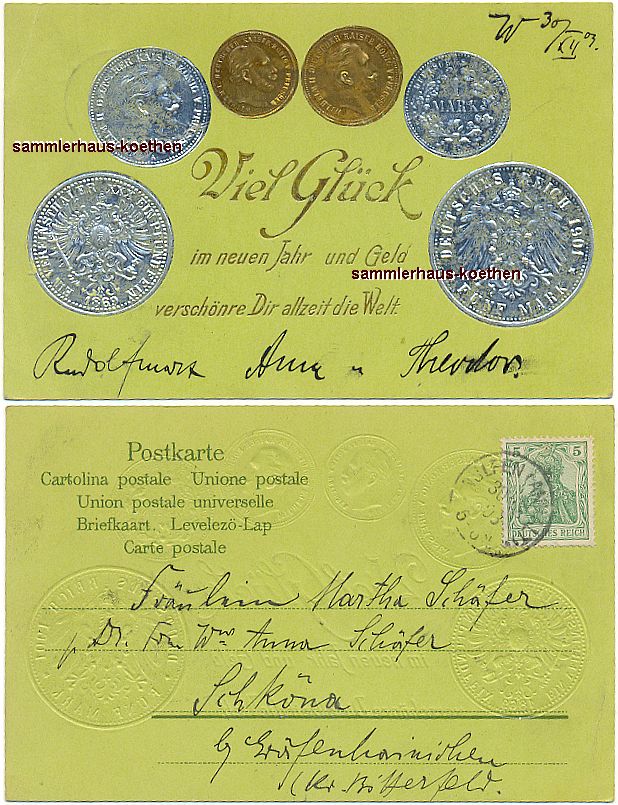 W 30/XII 03.
MARK
sammlerhaus-koethen
Viel Glück
im neuen Jahr und Geld
DEUTSCHES REICH 190
sammlerhaus-koethen
FÜNF MARK
verschönre Dir allzeit die Welt.
Anna u Theodor.
Postkarte
Cartolina postale Unione postale
Union postale universelle
Briefkaart. Levelezö-Lap
Carte postale
5 5
DEUTSCHES REICH
Fräulein Martha Schäfer
Anna Schäfer
Schköna
b/ Gräfenhainichen
Kr. Bitterfeld.